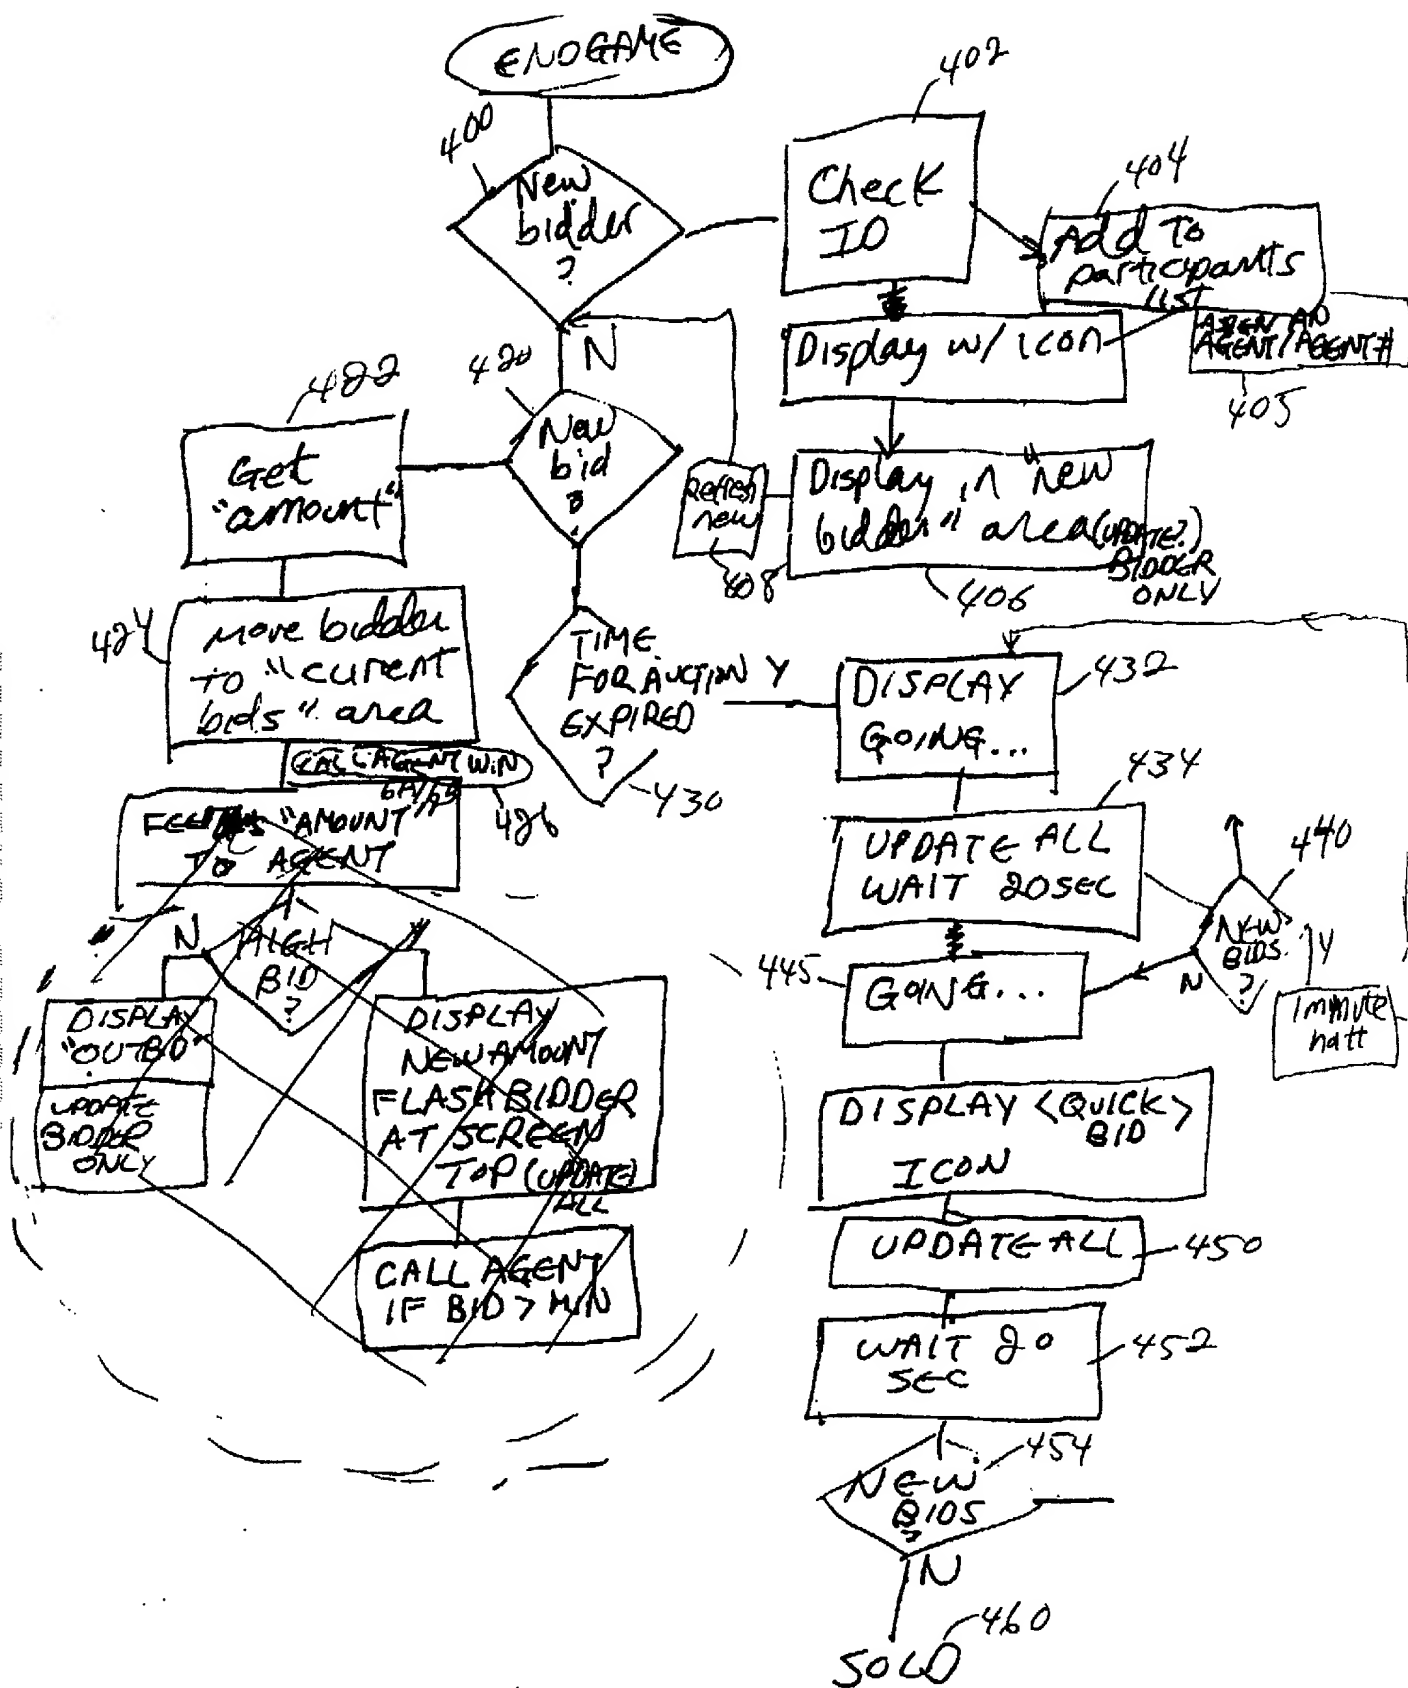 ENDGAME
400
New
bidder
?
402
Check
ID
404
Add To
participants
list
AGENT/AGENT#
405
Display w/ icon
N
420
New
bid
?
422
Get
"amount"
Refresh
new
408
Display in "new
bidder" area (UPDATE?)
BIDDER
ONLY
406
424
Move bidder
to "current
bids" area
CALL AGENT WIN
426
"AMOUNT"
TO AGENT
TIME
FOR AUCTION Y
EXPIRED
?
430
DISPLAY
GOING...
432
UPDATE ALL
WAIT 20 SEC
434
440
NEW
BIDS
?
Y
N
1 minute
445
GOING...
N
HIGH
BID
?
DISPLAY
"OUTBID"
UPDATE
BIDDER
ONLY
DISPLAY
NEW AMOUNT
FLASH BIDDER
AT SCREEN
TOP (UPDATE)
ALL
CALL AGENT
IF BID > MIN
DISPLAY <QUICK>
BID
ICON
UPDATE ALL
450
WAIT 20
SEC
452
454
NEW
BIDS
?
N
460
SOLD